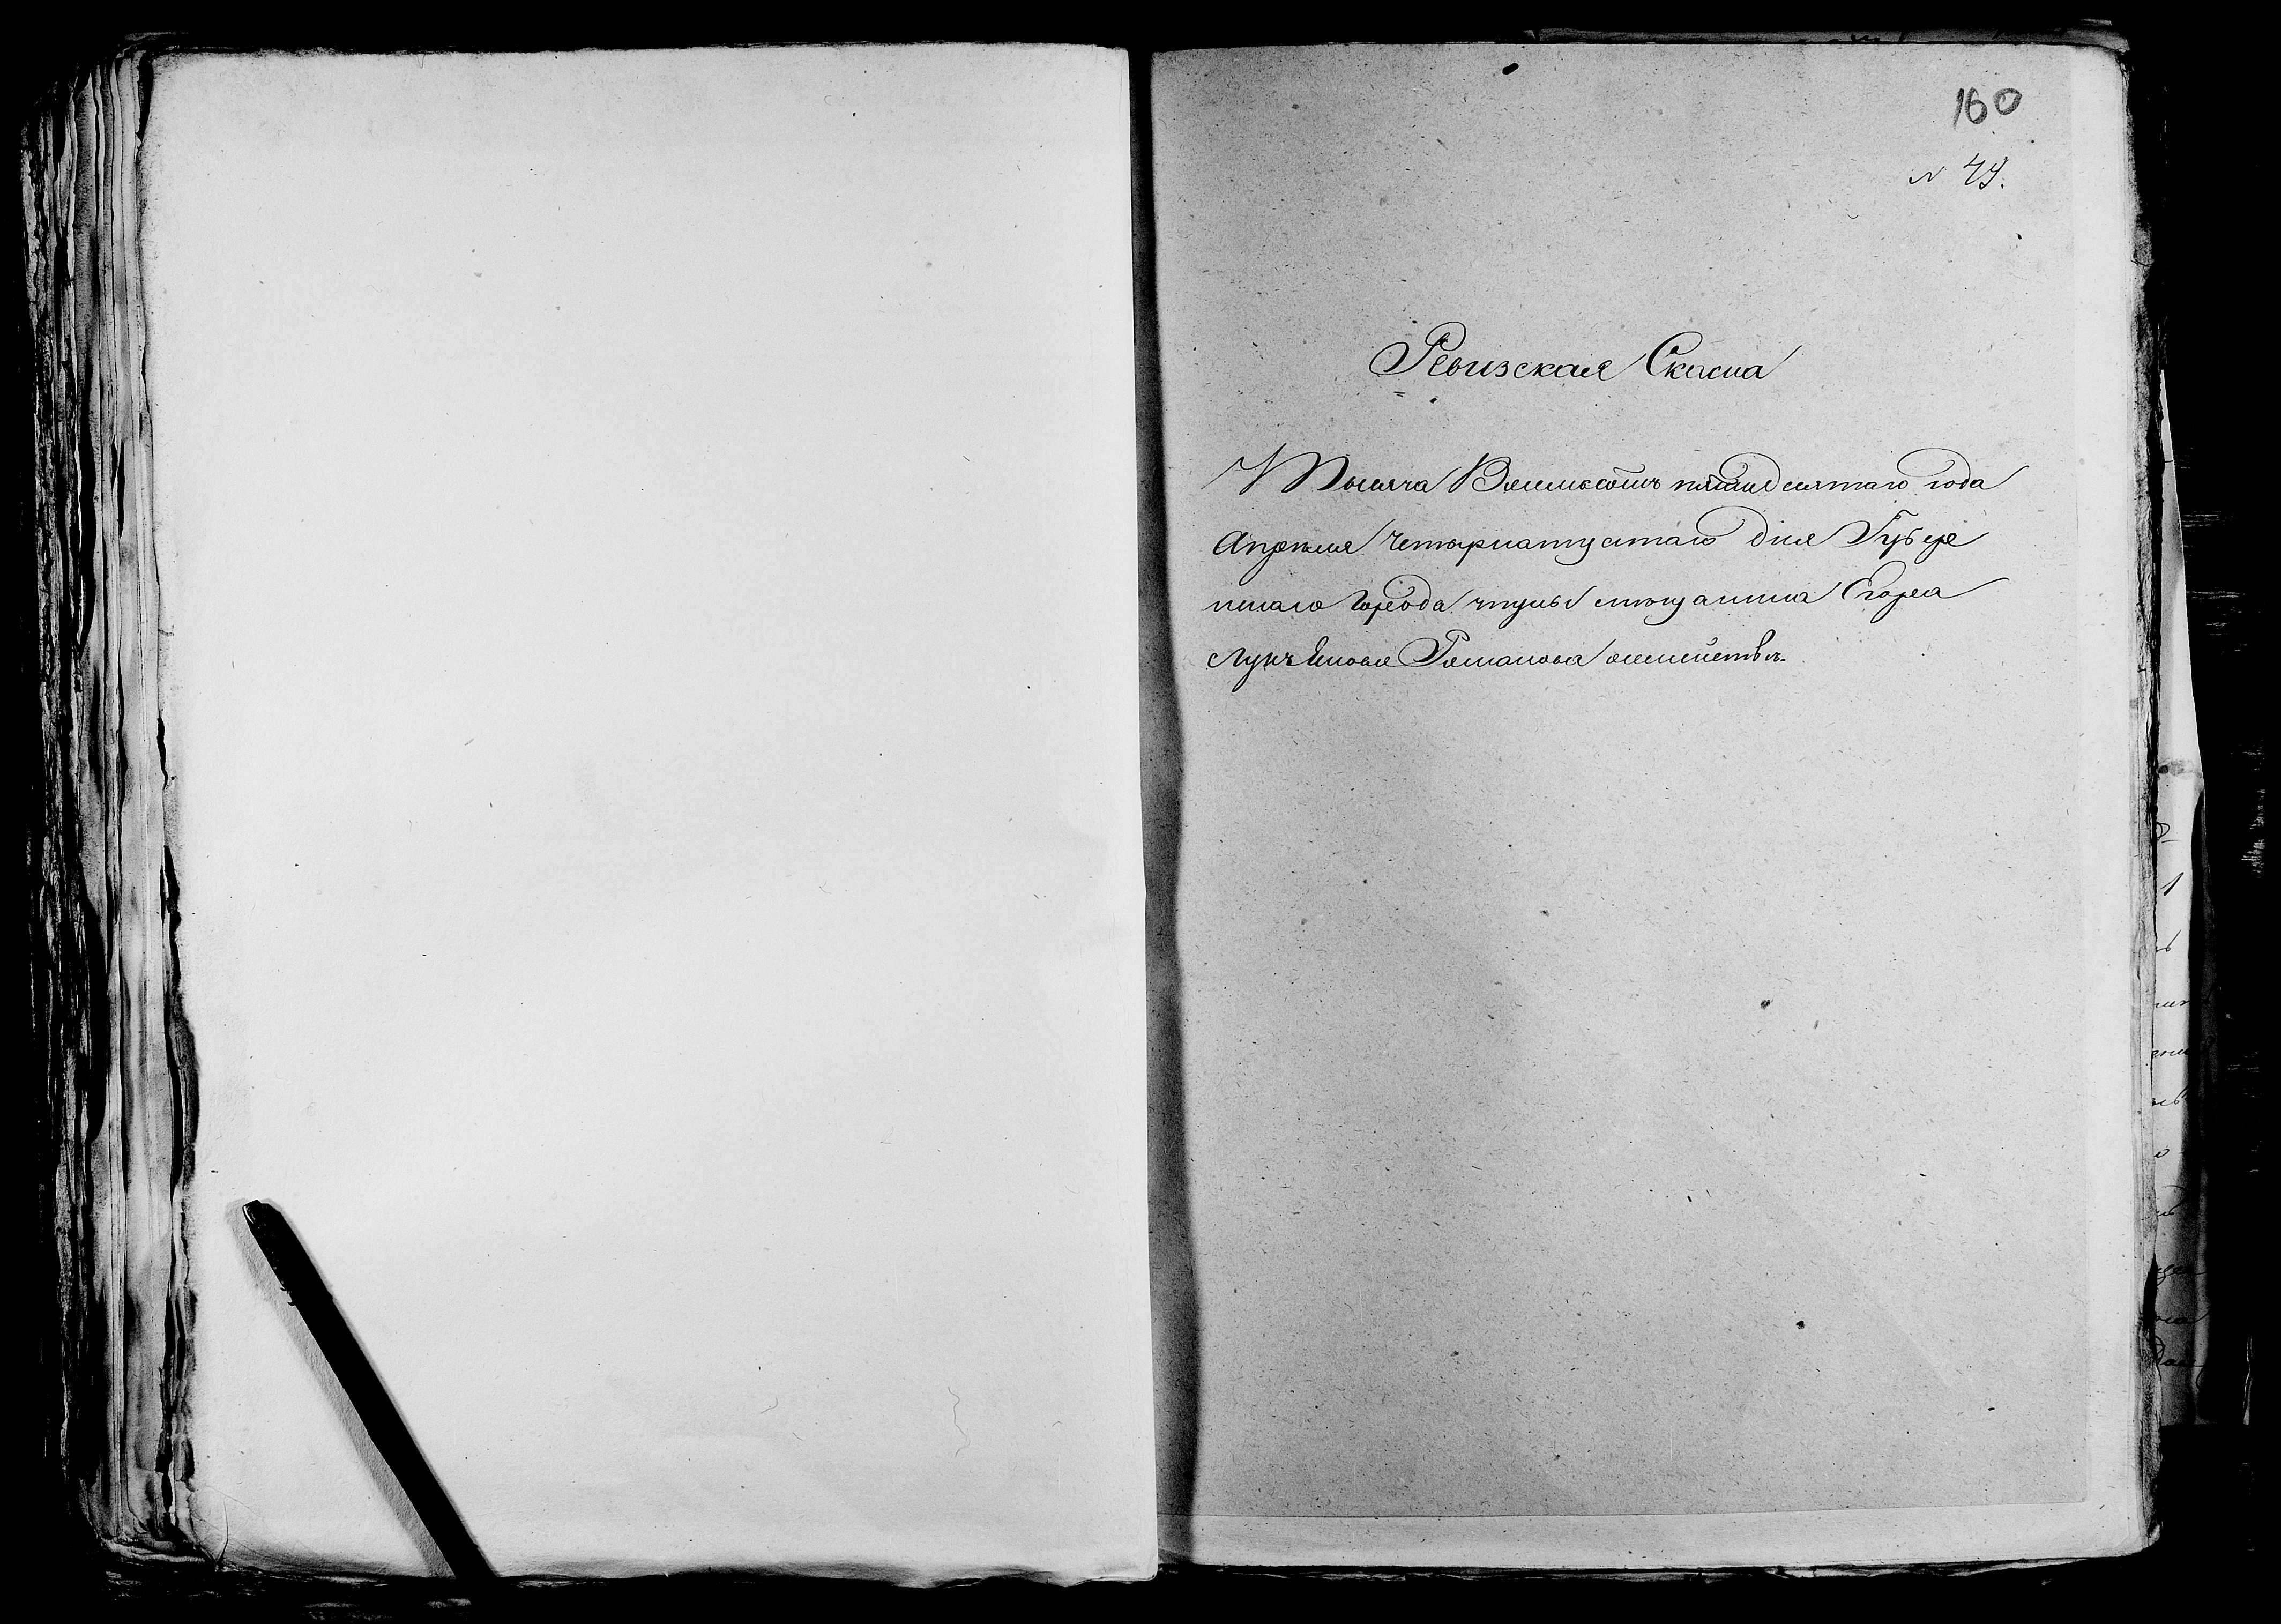 160
N 49.
Ревизская Сказка
Тысяча Восемьсотъ пятидесятаго года
Апреля Четырнатцетаго дня Губер
нскаго города Тулы мещанина Егора
Лукъянова Романова семействъ.